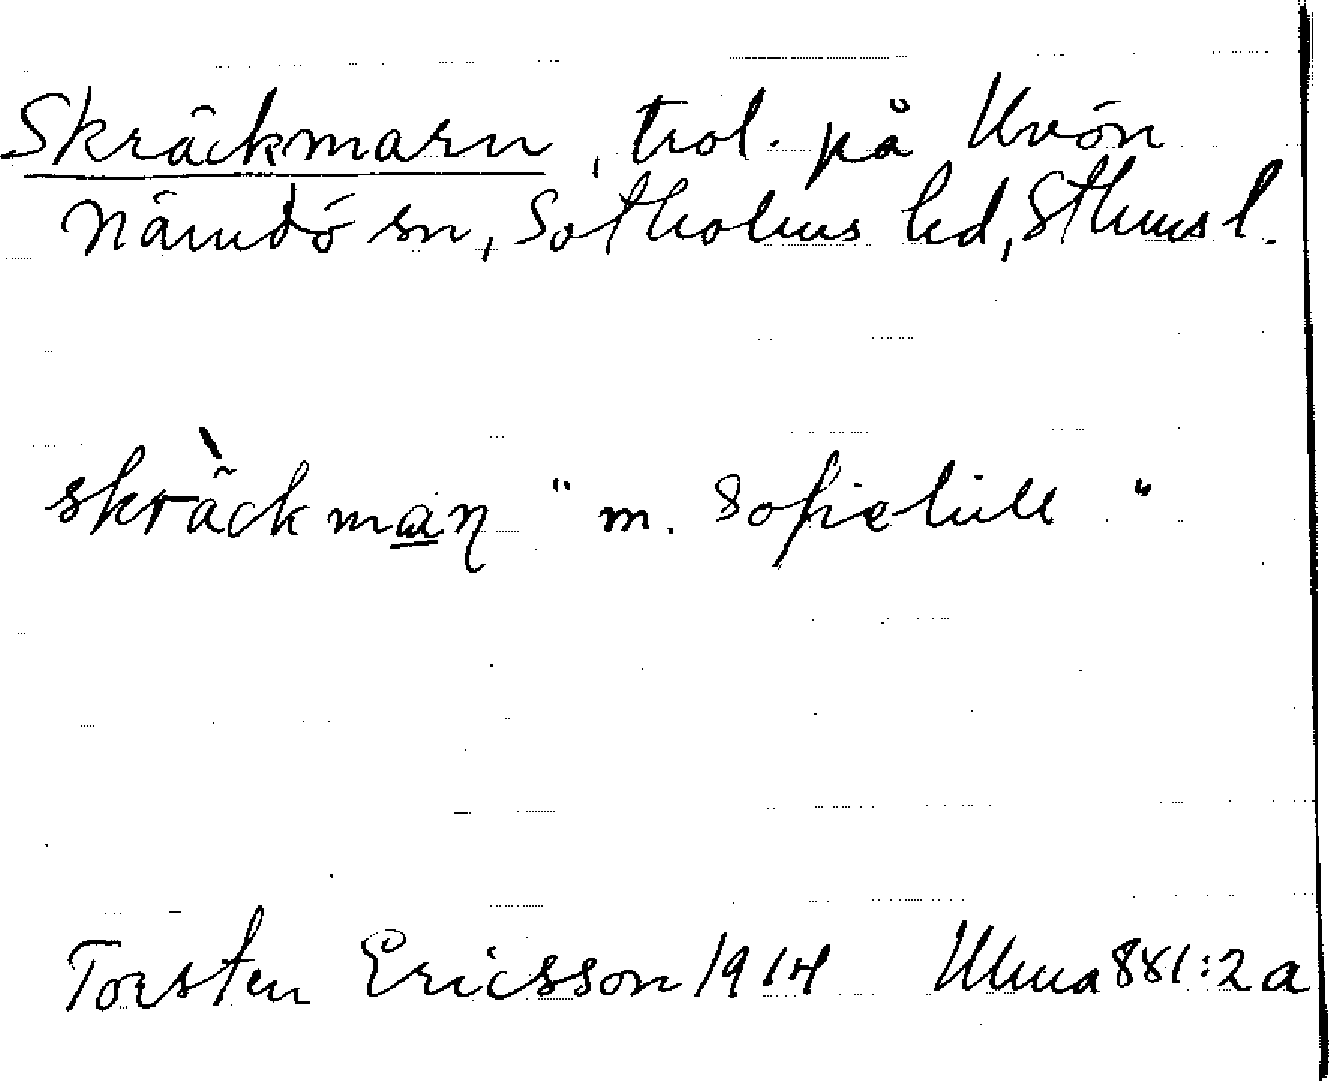 Skräckmarn, trol. på Uvön
Nämdö sn, Sotholms hd, Sthms l.
skräckmaṇ "m. Sofielill"
Torsten Ericsson 1914 Ulma 881:2a